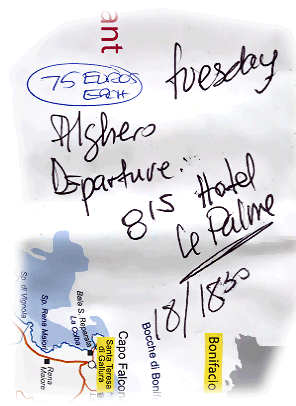 ant
75 EUROS
EACH
tuesday
Alghero
Departure:
8 15 Hotel
Le Palme
18/1830
Sp. di Vignola
Sp. Rena Maiore
Rena
Maiore
Baia S. Reparata
La Colba
Santa Teresa
di Gallura
Capo Falcon
Bocche di Bonif
Bonifacio